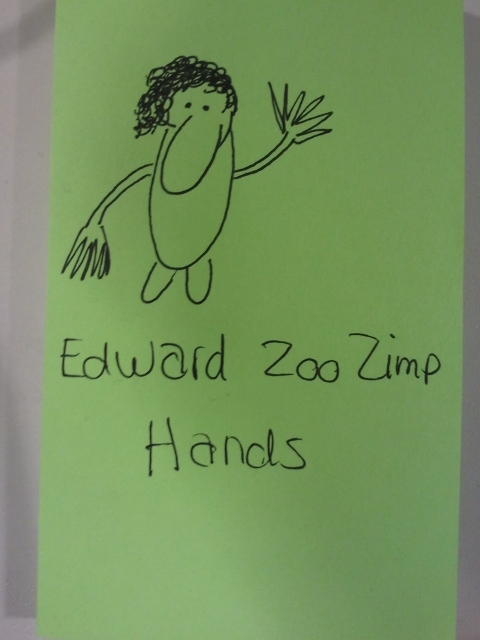 Edward Zoo Zimp
Hands